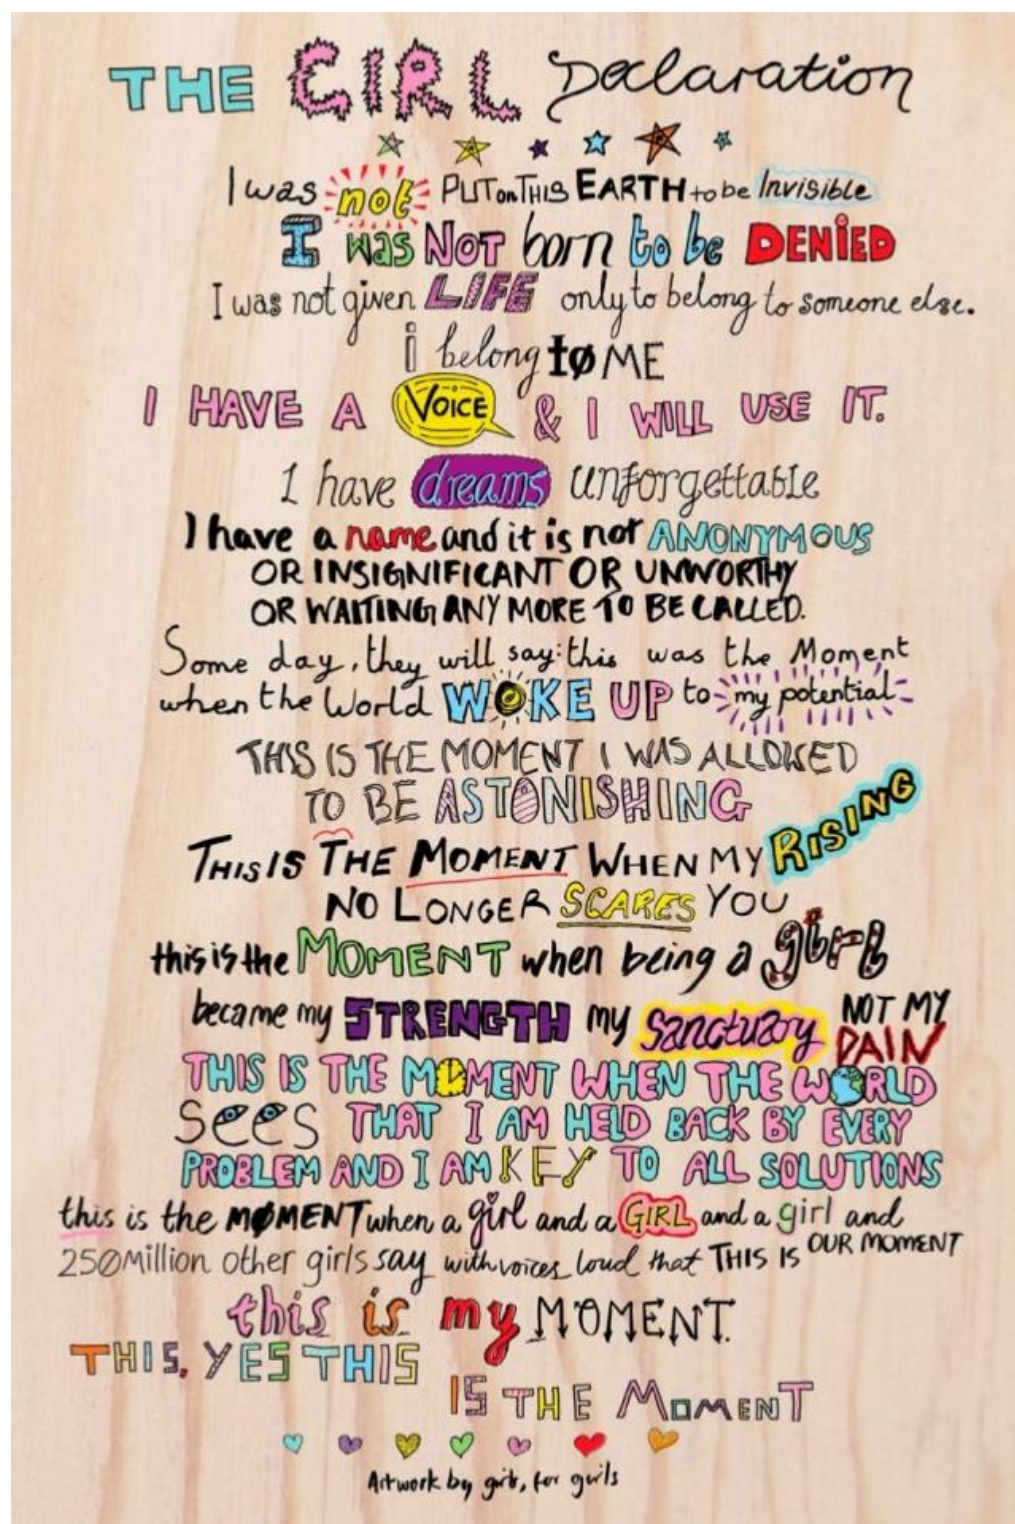 THE GIRL Declaration
I was not PUT on THIS EARTH to be Invisible
I was NOT born to be DENiED
I was not given LIFE only to belong to someone else.
i belong to ME
I HAVE A VOiCE & I WILL USE IT.
I have dreams unforgettable
I have a name and it is not ANONYMOUS
OR INSIGNIFICANT OR UNWORTHY
OR WAITING ANY MORE TO BE CALLED.
Some day, they will say: this was the Moment
when the World WOKE UP to my potential
THIS IS THE MOMENT I WAS ALLOWED
TO BE ASTONISHING
THIS IS THE MOMENT WHEN MY RISING
NO LONGER SCARES YOU
this is the MOMENT when being a girl
became my STRENGTH my Sanctuary NOT MY PAIN
THIS IS THE MOMENT WHEN THE WORLD
Sees THAT I AM HELD BACK BY EVERY
PROBLEM AND I AM KEY TO ALL SOLUTIONS
this is the MØMENT when a girl and a GIRL and a girl and
250 Million other girls say with voices loud that THIS IS OUR MOMENT
this is my MOMENT.
THIS, YES THIS
IS THE MOMENT
Artwork by girls, for girls